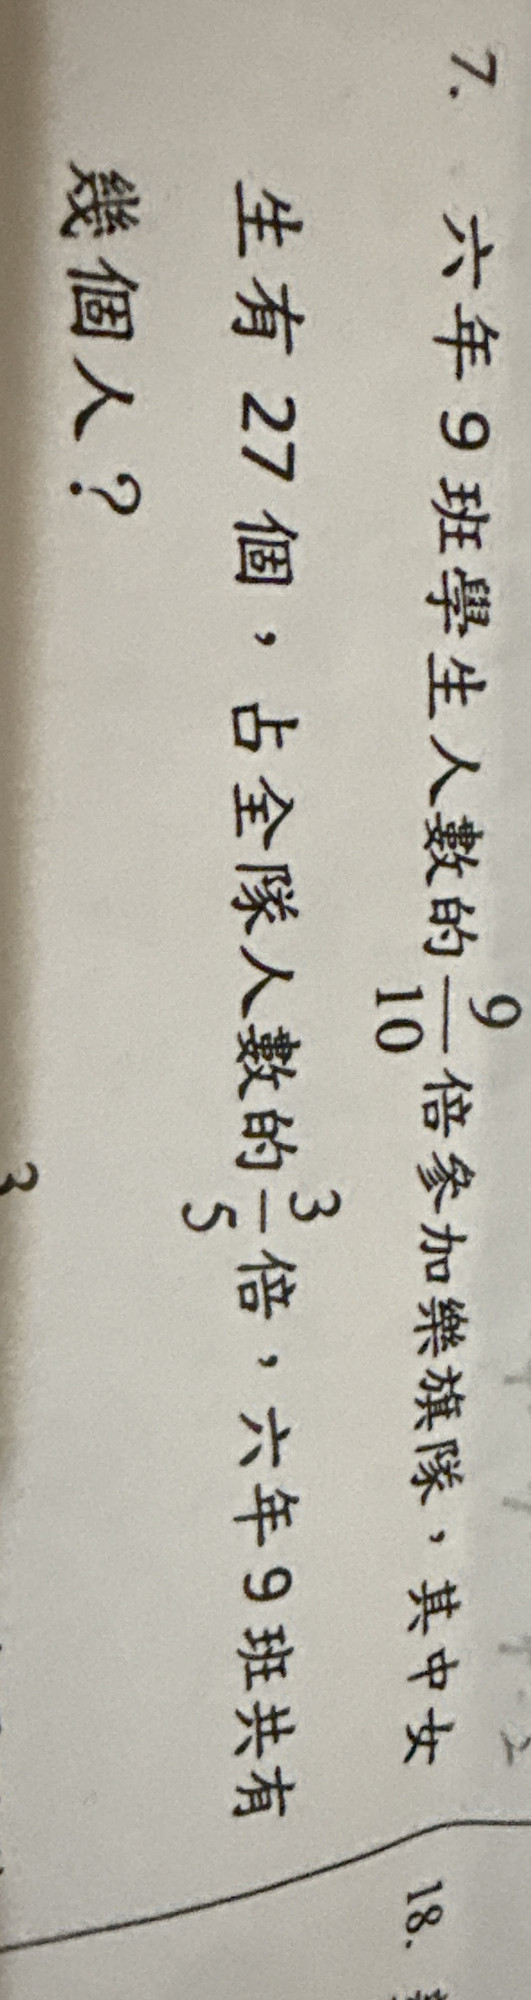 7. 六年9班學生人數的9/10倍參加樂旗隊，其中女
生有27個，占全隊人數的3/5倍，六年9班共有
幾個人？
18.
3